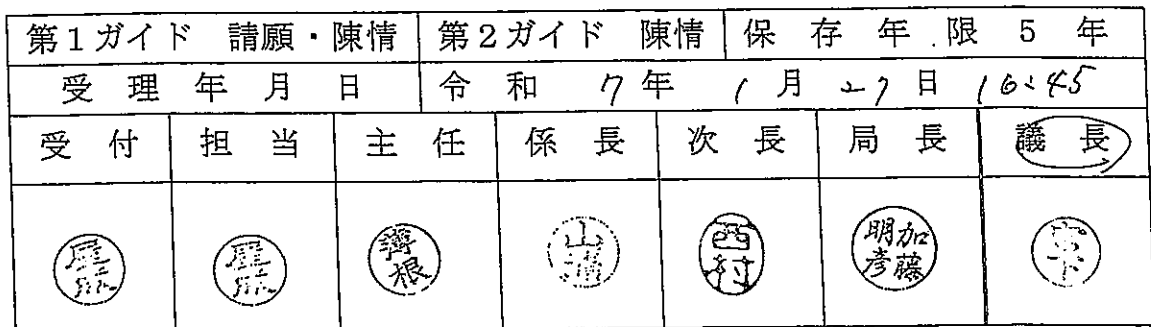 第1ガイド 請願・陳情 第2ガイド 陳情 保存年限 5年
受理年月日 令和 7年 1月 27日 16:45
受付 担当 主任 係長 次長 局長 議長
薄根 山溝 西村 加藤明彦